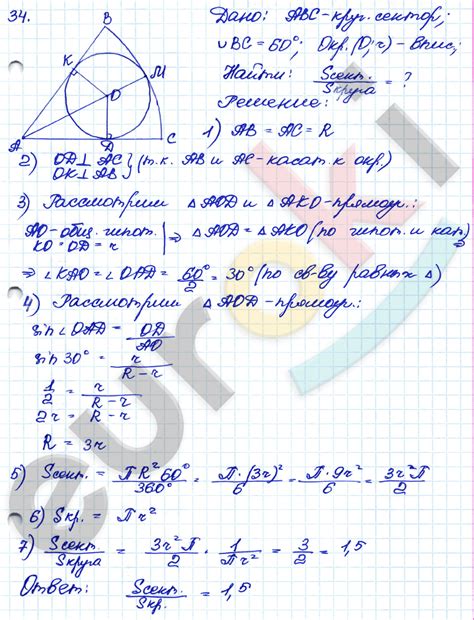 34.
Дано: ABC-круг. сектор;
∪BC = 60°; Окр.(O; r) - впис;
Найти: Sсект./Sкруга = ?
Решение:
1) AB = AC = R
B
K
M
O
A
D
C
2) OD ⊥ AC
OK ⊥ AB } (т.к. AB и AC - касат. к окр.)
3) Рассмотрим △AOD и △AKO - прямоуг.:
AO - общ. гипот.
KO = OD = r | ⇒ △AOD = △AKO (по гипот. и кат.) ⇒
⇒ ∠KAO = ∠OAD = 60°/2 = 30° (по св-ву равных △)
4) Рассмотрим △AOD - прямоуг.:
sin∠OAD = OD/AO
sin30° = r/(R-r)
1/2 = r/(R-r)
2r = R-r
R = 3r
5) Sсект. = ПR²60°/360° = П·(3r)²/6 = П·9r²/6 = 3r²П/2
6) Sкр. = Пr²
7) Sсект./Sкруга = 3r²П/2 · 1/Пr² = 3/2 = 1,5
Ответ: Sсект./Sкр. = 1,5
euroki